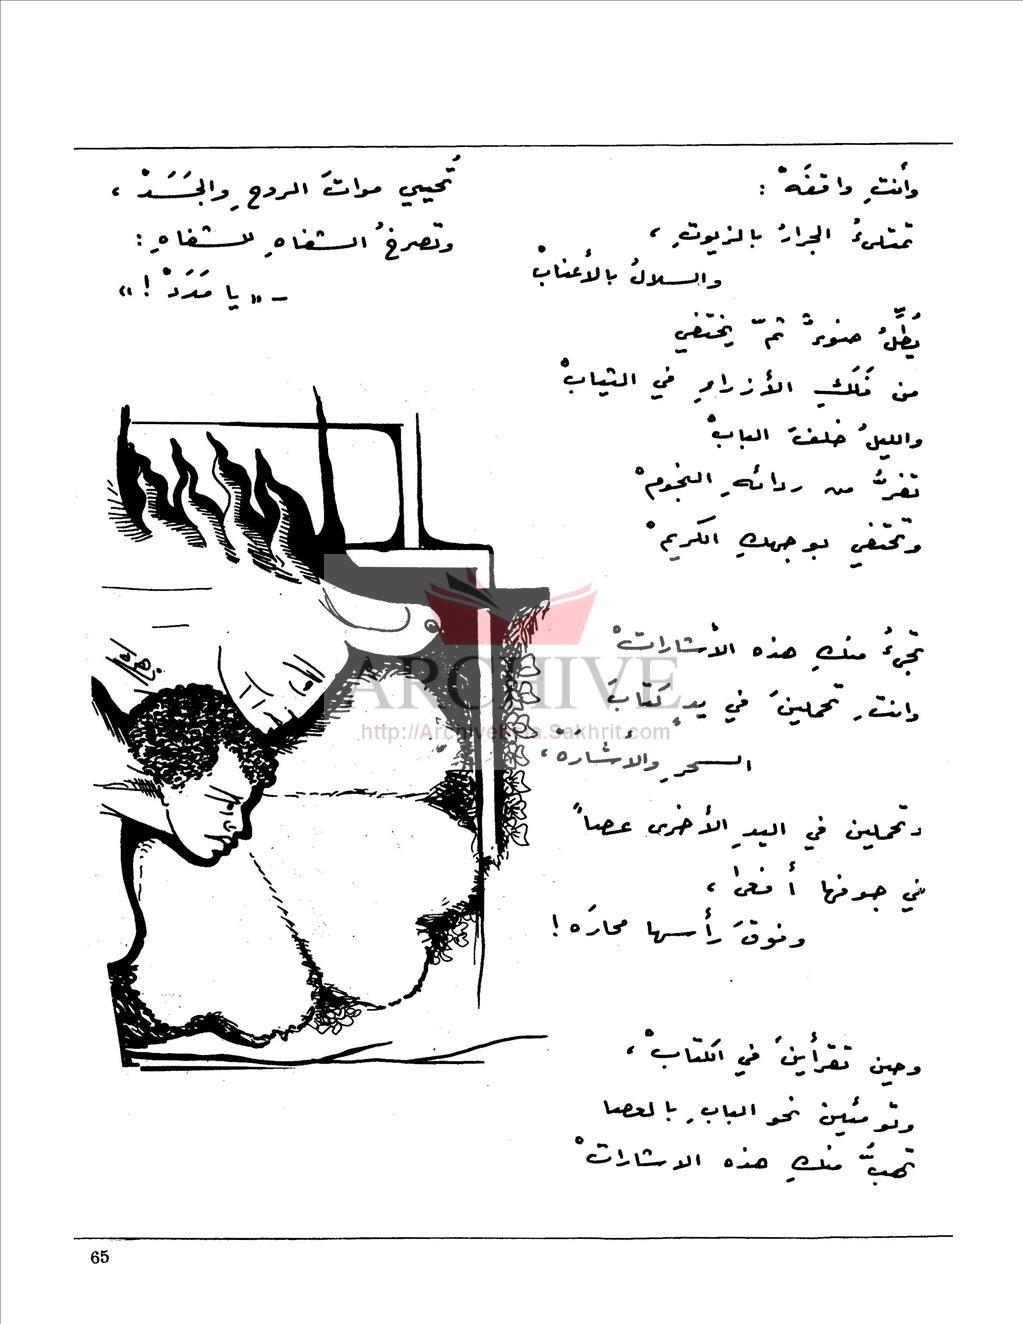 وأنتِ واقفَهْ :
تمتلئُ الجرارُ بالزيوتِ ،
والسلالُ بالأعنابْ
يُطِلُّ ضوءٌ ثمّ يختفي
من فَلَكِ الأزرارِ في الثيابْ
والليلُ خلفَ البابْ
تفرُّ من ردائهِ النجومْ
وتختفي بوجهكِ الكريمْ
تجيءُ منكِ هذه الأشاراتْ
وانتِ تحملينَ في يدٍ كتابَ
السحرِ والأشارَه ،
وتحملين في اليدِ الأخرى عصاً
في جوفها أفعىً ،
وفوقَ رأسها محارَه !
وحين تقرأينَ في الكتابْ ،
وتومئين نحو البابِ بالعصا
تهبُّ منكِ هذه الاشاراتْ
تُحيي مواتَ الروحِ والجَسَدْ ،
وتصرخُ الشفاهِ للشفاهِ :
– « يا مَدَدْ ! »
ARCHIVE
http://Archivebeta.Sakhrit.com
65